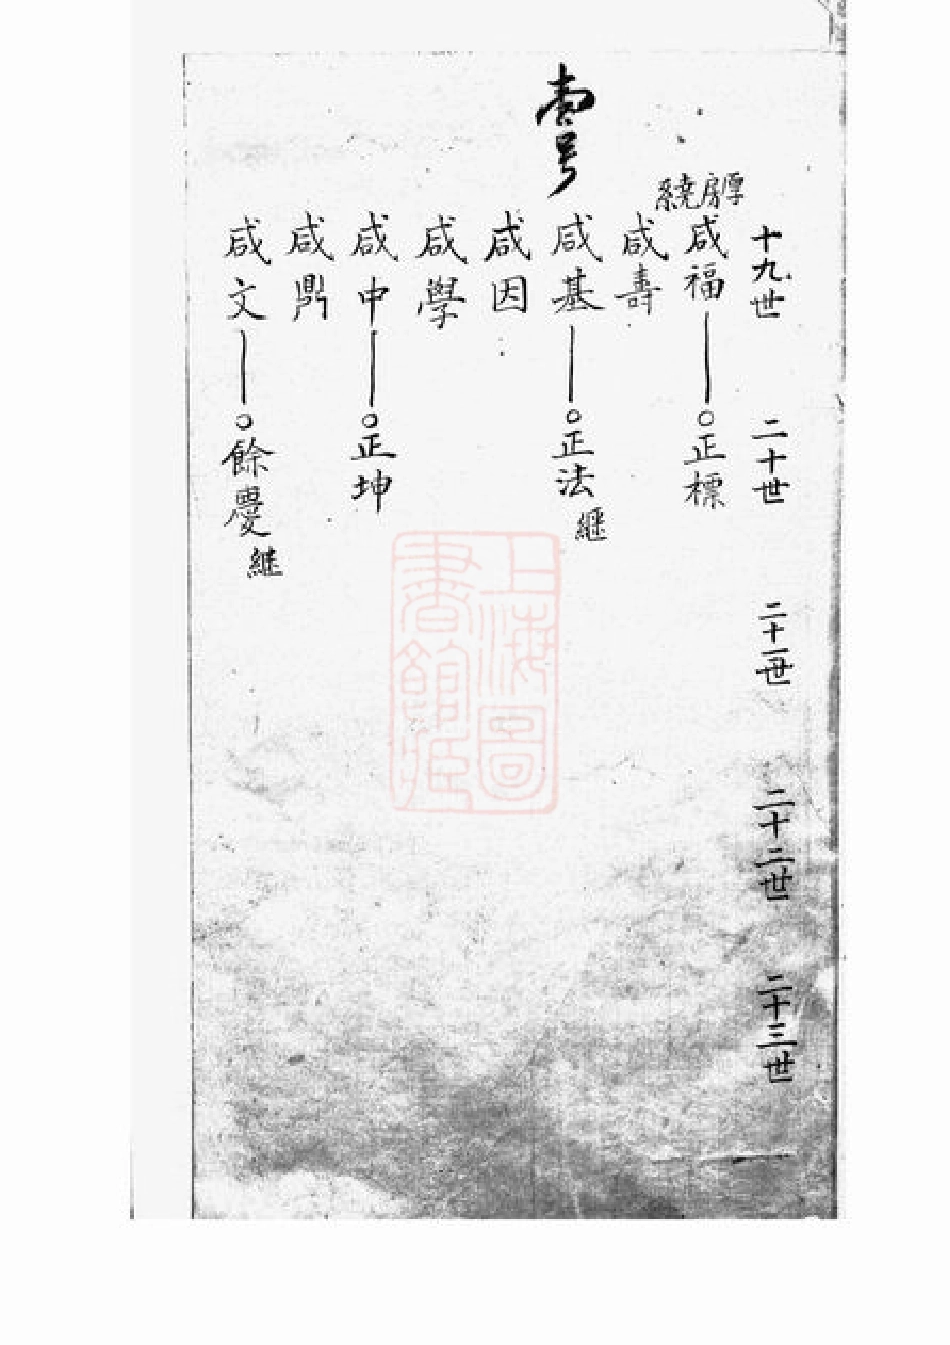 十九世
二十世
二十一世
二十二世
二十三世
厚房繞系
咸福——○正標
咸壽
壹号
咸基——○正法 繼
咸因
咸學
咸中——○正坤
咸鼎
咸文——○餘慶 継
上海圖
書館藏